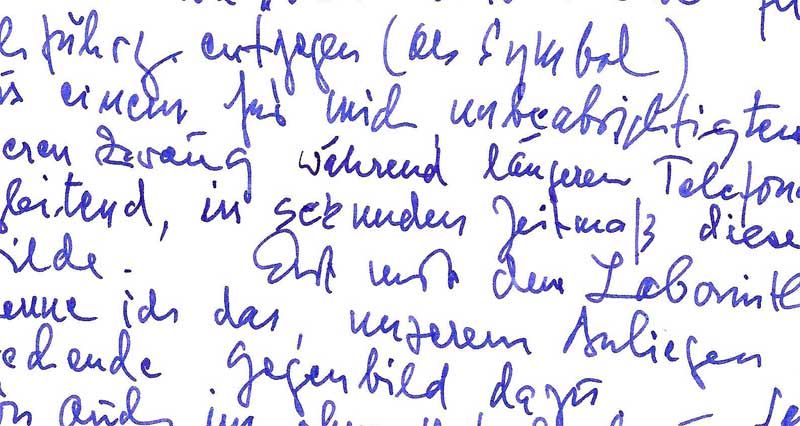 entgegen (als Symbol)
einem für mich unbeabsichtigten
eren Zwang während längeren Telefon
gleitend, in sekunden Zeitmaß diese
ilde. Erst mit dem Labyrinth
enne ich das, unserem Anliegen
echende Gegenbild dazu
auch im